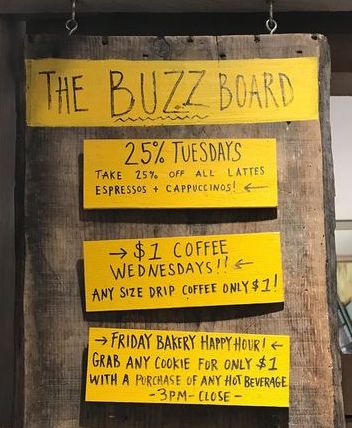 THE BUZZ BOARD
25% TUESDAYS
TAKE 25% OFF ALL LATTES
ESPRESSOS + CAPPUCCINOS! ←
→ $1 COFFEE
WEDNESDAYS!! ←
ANY SIZE DRIP COFFEE ONLY $1!
→ FRIDAY BAKERY HAPPY HOUR! ←
GRAB ANY COOKIE FOR ONLY $1
WITH A PURCHASE OF ANY HOT BEVERAGE
-3PM-CLOSE-